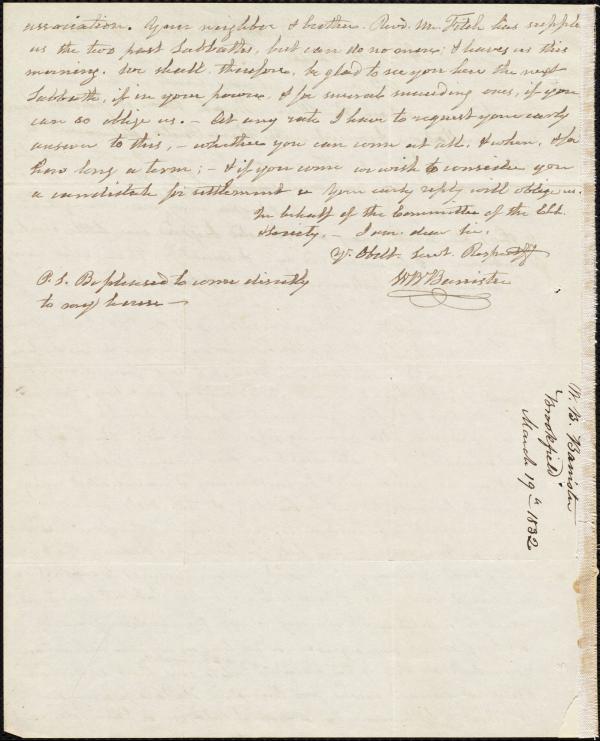 association. Your neighbor & brother Revd. Mr. Fitch has supplied
us the two past Sabbaths, but can do no more; & leaves us this
morning. We shall, therefore, be glad to see you here the next
Sabbath, if in your power, & for several succeeding ones, if you
can so oblige us. – At any rate I have to request your early
answer to this, – whether you can come at all, & when, & for
how long a term; – & if you come we wish to consider you
a candidate for settlement &c Your early reply will oblige us.
In behalf of the Committee of the Chh.
& Society, – I am, dear Sir,
Yr. Obedt. Servt. Respectfy
W B Bannister
P.S. Be pleased to come directly
to my house –
W. B. Banister
Brookfield
March 19th 1832